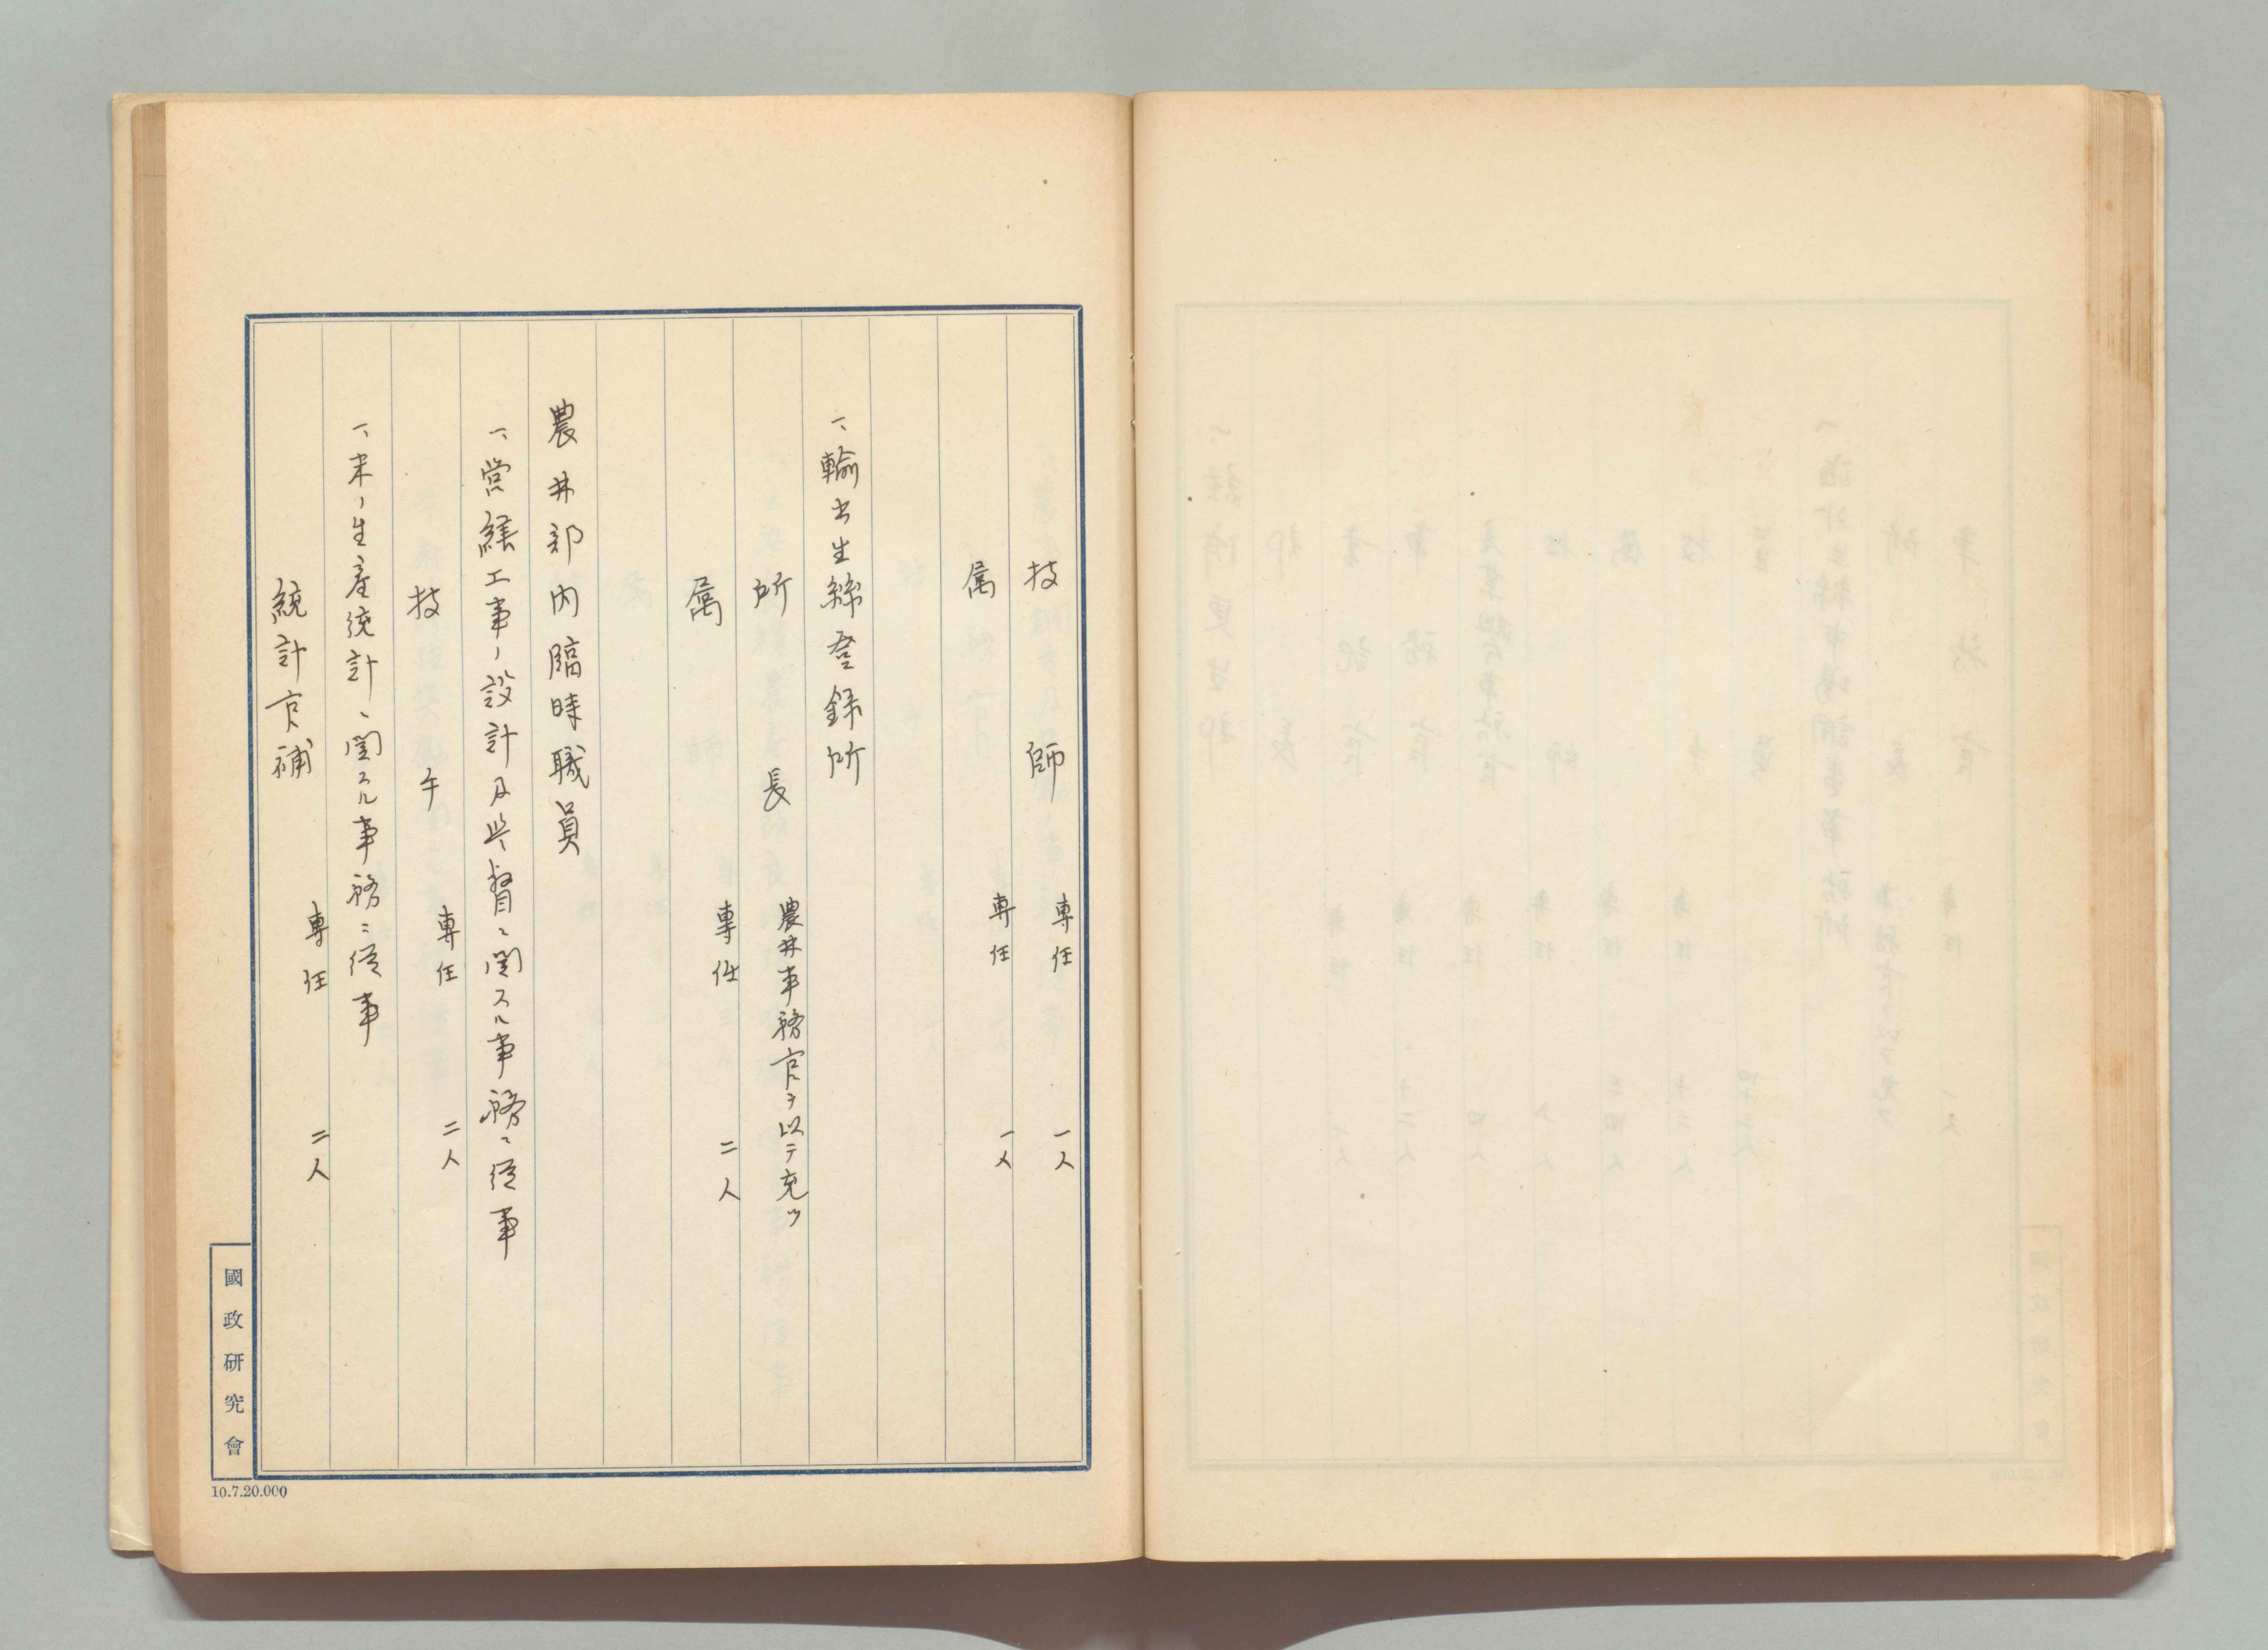 技師 専任 一人
属 専任 一人
一、輸出生絲登録所
所長 農林事務官ヲ以テ充ツ
属 専任 二人
農林部内臨時職員
一、営繕工事ノ設計及監督ニ関スル事務ニ従事
技手 専任 二人
一、米ノ生産統計ニ関スル事務ニ従事
統計官補 専任 二人
國政研究會
10.7.20.000